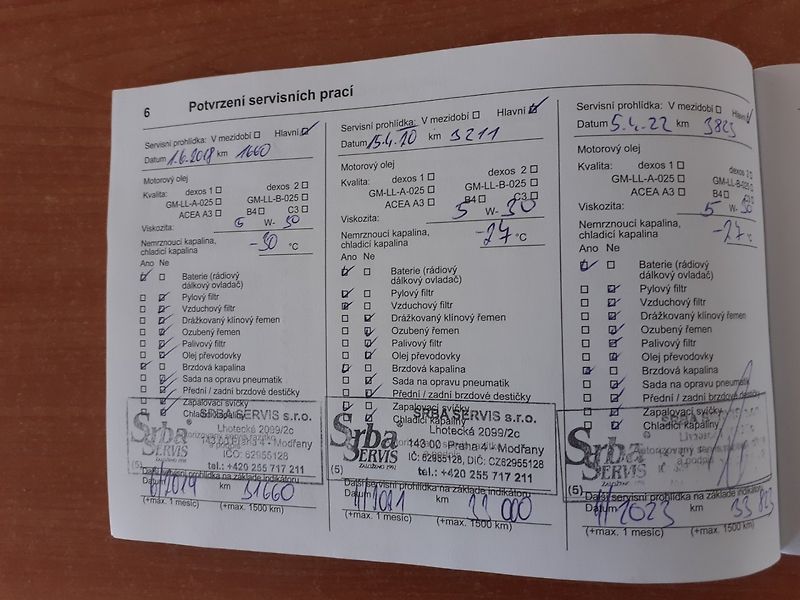 6 Potvrzení servisních prací
Servisní prohlídka: V mezidobí Hlavní
Datum 1.6.2018 km 1660
Motorový olej
Kvalita: dexos 1 dexos 2
GM-LL-A-025 GM-LL-B-025
ACEA A3 B4 C3
Viskozita: 5 W- 30
Nemrznoucí kapalina,
chladicí kapalina -30 °C
Ano Ne
Baterie (rádiový
dálkový ovladač)
Pylový filtr
Vzduchový filtr
Drážkovaný klínový řemen
Ozubený řemen
Palivový filtr
Olej převodovky
Brzdová kapalina
Sada na opravu pneumatik
Přední / zadní brzdové destičky
Zapalovací svíčky
Chladicí kapaliny
SRBA SERVIS s.r.o.
Lhotecká 2099/2c
143 00 Praha 4 - Modřany
IČO: 62955128
tel.: +420 255 717 211
Srba
SERVIS
ZALOŽENO 1991
(5) Další servisní prohlídka na základě indikátoru
Datum 2019 km 31660
(+max. 1 měsíc) (+max. 1500 km)
Servisní prohlídka: V mezidobí Hlavní
Datum 15.4.20 km 3211
Motorový olej
Kvalita: dexos 1 dexos 2
GM-LL-A-025 GM-LL-B-025
ACEA A3 B4 C3
Viskozita: 5 W- 30
Nemrznoucí kapalina,
chladicí kapalina -27 °C
Ano Ne
Baterie (rádiový
dálkový ovladač)
Pylový filtr
Vzduchový filtr
Drážkovaný klínový řemen
Ozubený řemen
Palivový filtr
Olej převodovky
Brzdová kapalina
Sada na opravu pneumatik
Přední / zadní brzdové destičky
Zapalovací svíčky
Chladicí kapaliny
SRBA SERVIS s.r.o.
Lhotecká 2099/2c
143 00 Praha 4 - Modřany
IČ: 62955128, DIČ: CZ62955128
tel.: +420 255 717 211
Srba
SERVIS
ZALOŽENO 1991
(5) Další servisní prohlídka na základě indikátoru
Datum 2021 km 33 000
(+max. 1 měsíc) (+max. 1500 km)
Servisní prohlídka: V mezidobí Hlavní
Datum 5.4.22 km 3823
Motorový olej
Kvalita: dexos 1 dexos 2
GM-LL-A-025 GM-LL-B-025
ACEA A3 B4 C3
Viskozita: 5 W- 30
Nemrznoucí kapalina,
chladicí kapalina -27 °C
Ano Ne
Baterie (rádiový
dálkový ovladač)
Pylový filtr
Vzduchový filtr
Drážkovaný klínový řemen
Ozubený řemen
Palivový filtr
Olej převodovky
Brzdová kapalina
Sada na opravu pneumatik
Přední / zadní brzdové destičky
Zapalovací svíčky
Chladicí kapaliny
Srba
SERVIS
(6) Další servisní prohlídka na základě indikátoru
Datum 2023 km 33 823
(+max. 1 měsíc) (+max. 1500 km)